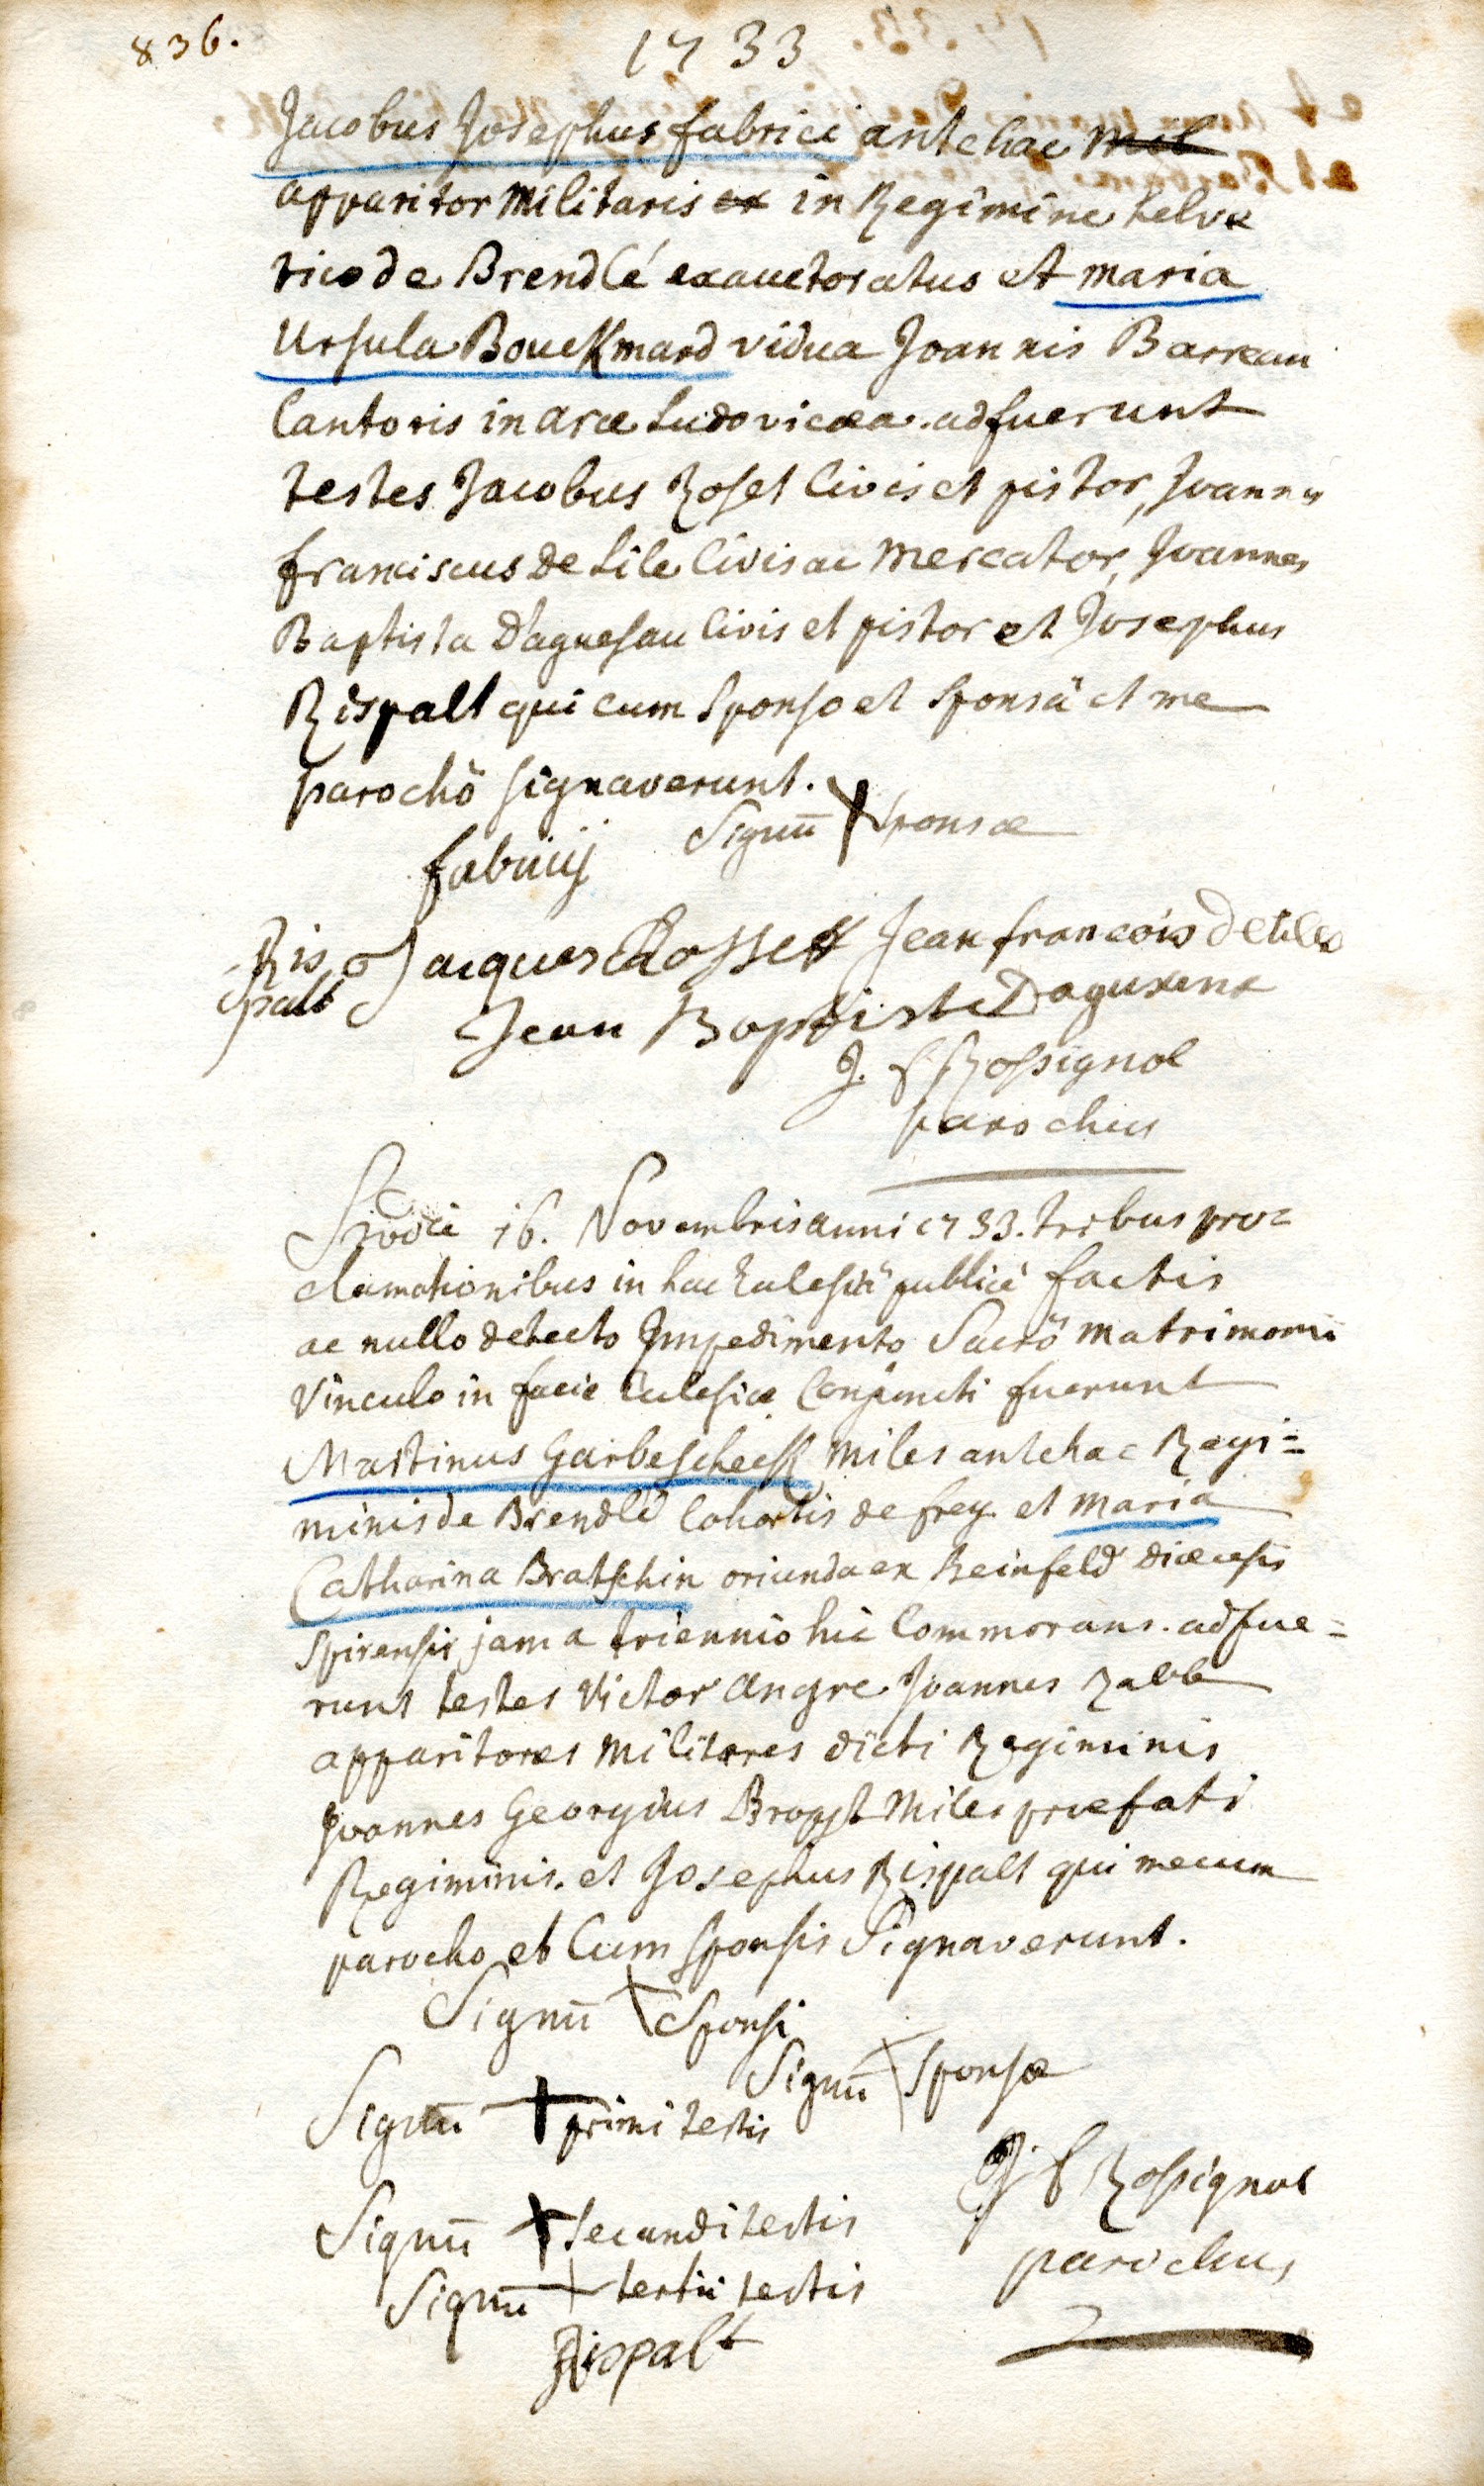 836.
1733
Jacobus Josephus fabrici antehac mil
apparitor militaris ex in Regimine helve
tico de Brendlé exauctoratus et maria
Ursula Bouckmard vidua Joannis Barreau
Cantoris in arce Ludovicæa. adfuerunt
testes Jacobus Roset Civis et pistor, Joannes
franciscus De Lile Civis ac Mercator, Joannes
Baptista D'aguesau Civis et pistor et Josephus
Rispalt qui cum Sponso et Sponsâ et me
parochô signaverunt.
Signū Sponsæ
fabricij
Ris
palt
Jacques Rosset Jean francois Delile
Jean Baptiste
J. Rossignol
parochus
Hodie 16. Novembris anni 1733. tribus proc
clamationibus in hac Ecclesiâ publicè factis
ac nullo detecto Impedimento Sacrô Matrimonii
Vinculo in facie Ecclesiæ Conjuncti fuerunt
Martinus Garbescheck Miles antehac Regi=
minis de Brendlé Cohortis de frey. et Maria
Catharina Bratschin oriunda ex Reinfeld diœcesis
Spirensis jam a triennio hic Commorans. adfue=
runt testes Victor Angre Joannes Rabb
apparitores Militares dicti Regiminis
Joannes Georgius Bropst Miles præfati
Regiminis. et Josephus Rispalt qui mecum
parocho et Cum Sponsis Signaverunt.
Signū Sponsi
Signū Sponsæ
Signū primi testis
Signū Secundi testis
Signū tertii testis
J Rossignol
parochus
Rispalt